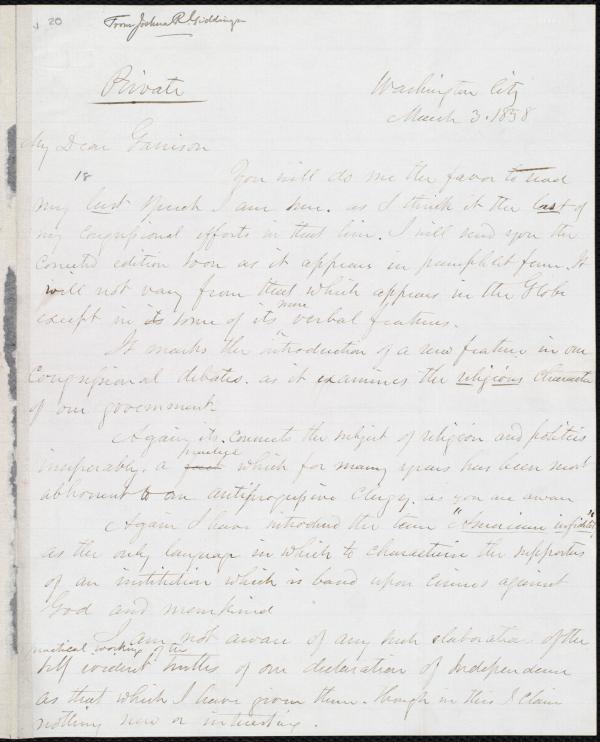 20
From Joshua R. Giddings
Private
Washington City
March 3. 1858
My Dear Garrison
18
You will do me the favor to read
my last speech I am sure. as I think it the last of
my congressional efforts in that line. I will send you the
corrected edition soon as it appears in pamphlet form. It
will not vary from that which appears in the Globe
more
except in its some of its verbal features.
It marks the introduction of a new feature in our
Congressional debates. as it examines the religious character
of our government
Again, its connects the subject of religion and politics
practice
inseperably. a which for many years has been most
abhorrent to an antiprogressive Clergy. as you are aware
Again I have introduced the term "American infidels"
as the only language in which to characterise the supporters
of an institution which is based upon crimes against
God and mankind
I am not aware of any such elaboration of the
practical working of the
self evident truths of our declaration of Independence
as that which I have given them. though in this I claim
nothing new or interesting.